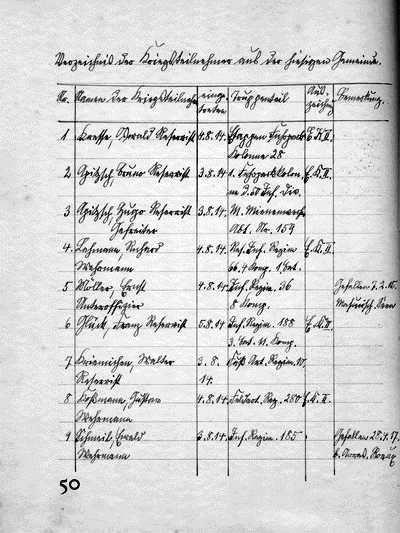 Verzeichnis der Kriegsteilnehmer aus der hiesigen Gemeinde.
No. Namen der Kriegsteilnehm. einge- Truppenteil Aus- Bemerkung.
treten zeichng
1. Oswald Reservist 4.8.14. Etappen Fuhrpark E.K.II.
Kolonne 28
2. Opitzsch, Bruno Reservist 3.8.14. 1. Fuhrparkkolon- E.K.II.
ne d. 58 Inf. Div.
3 Opitzsch, Hugo Reservist 3.8.14. M.
Gefreiter Abt. Nr. 159
4. Lehmann, Richard 4.8.14. Res. Inf. Regim E.K.II.
Wehrmann 66. 4 Komp. 1 Bat.
5 Möller, Ernst 4.8.14 Inf. Regim. 36 Gefallen 7.2.15.
Unteroffizier 8 Komp.
6. Glück, Franz Reservist 5.8.14 Inf. Regim. 188 E.K.II.
3. Bat. 11. Komp.
7. Kriemichen, Walter 3. 8. Fuß Art. Regim.
Reservist 14.
8 Roßmann, Gustav 4.8.14. Feldart. Reg. 280 E.K.II.
Wehrmann
9 Schmeil, Ewald 3.8.14. Inf. Regim. 185 Gefallen 28.4.17.
Wehrmann
50